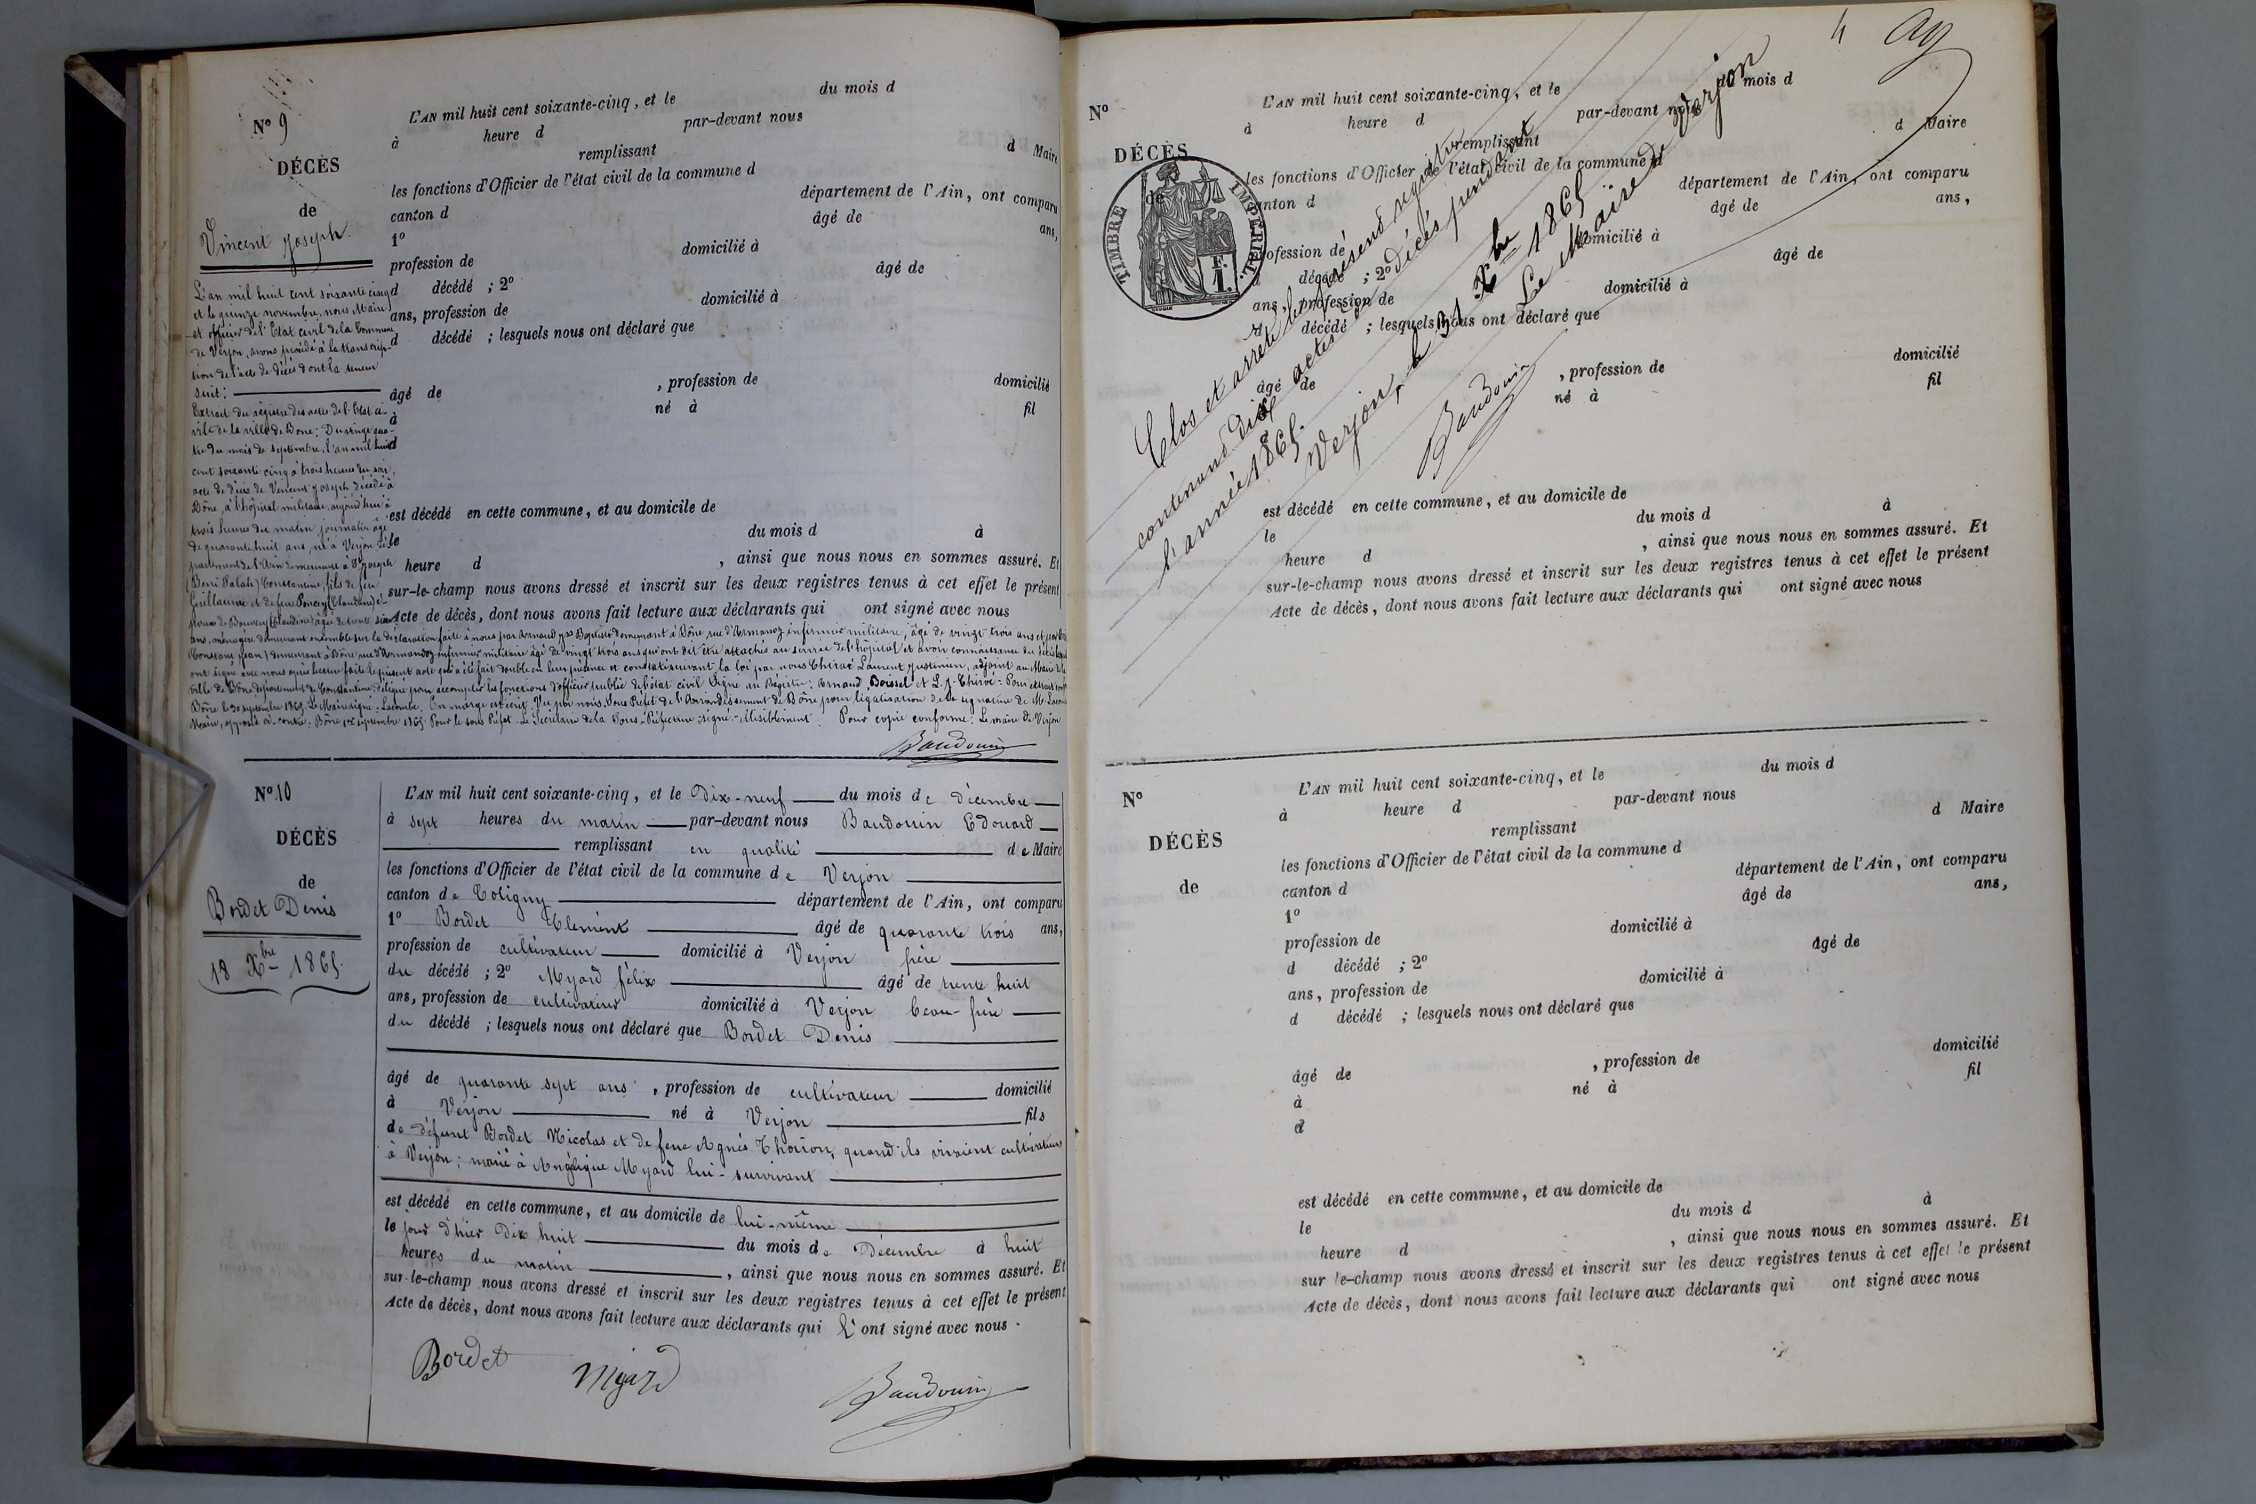 N° 9
DÉCÈS
de
Vincent Joseph
L'AN mil huit cent soixante-cinq, et le du mois d
à heure d par-devant nous
remplissant d Maire
les fonctions d'Officier de l'état civil de la commune d
canton d département de l'Ain, ont comparu
1° âgé de ans,
profession de domicilié à
d décédé ; 2° âgé de
ans, profession de domicilié à
d décédé ; lesquels nous ont déclaré que
âgé de , profession de domicilié
à né à fil
d
est décédé en cette commune, et au domicile de
le du mois d à
heure d , ainsi que nous nous en sommes assuré. Et
sur-le-champ nous avons dressé et inscrit sur les deux registres tenus à cet effet le présent
Acte de décès, dont nous avons fait lecture aux déclarants qui ont signé avec nous
L'an mil huit cent soixante cinq
et le quinze novembre, nous Maire
et officier de l'Etat civil de la Commune
de Verjon, avons procédé à la transcrip-
tion de l'acte de décès dont la teneur
suit:
Extrait du registre des actes de l'Etat ci-
vil de la ville de Bone: Du vingt qua-
tre du mois de septembre, l'an mil huit
cent soixante cinq à trois heures du soir,
acte de décès de Vincent Joseph décédé à
Bône, à l'hôpital militaire, aujourd'hui à
trois heures du matin, journalier âgé
de quarante huit ans, né à Verjon dé-
partement de l'Ain demeurant à St Joseph
Constantine, fils de feu
Guillaume et de feue Poncey (Claudine)
âgée de trente six
ans, ménagère, demeurant ensemble sur la déclaration faite à nous par Arnaud Jn Baptiste demeurant à Bône rue d'Armandy infirmier militaire, âgé de vingt trois ans et par
demeurant à Bône rue d'Armandy infirmier militaire âgé de vingt trois ans qui ont dit être attachés au service de l'hôpital et avoir connaissance du décès
ont signé avec nous après lecture faite le présent acte qui a été fait double en leur présence et constaté suivant la loi par nous Chirac Laurent Justinien, adjoint au Maire de la
ville de Bône département de Constantine, délégué pour accomplir les fonctions d'officier public de l'état civil. Signé au Registre: Arnaud, Boissel et L. J. Pour extrait
Bône le 30 septembre 1865. Le Maire signé: Lacombe. En marge est écrit: Vu par nous, Sous Préfet de l'Arrondissement de Bône pour légalisation de la signature de M. Lacombe
Maire, apposée ci-contre. Bône septembre 1865. Pour le sous Préfet Le Secrétaire de la Sous-Préfecture signé: illisiblement. Pour copie conforme: Le maire de Verjon
Baudouin
N° 10
DÉCÈS
de
Bordet Denis
18 Xbre 1865.
L'AN mil huit cent soixante-cinq, et le Dix-neuf du mois de décembre
à sept heures du matin par-devant nous Baudouin Edouard
remplissant en qualité de Maire
les fonctions d'Officier de l'état civil de la commune de Verjon
canton de Coligny département de l'Ain, ont comparu
1° Bordet Clément âgé de quarante trois ans,
profession de cultivateur domicilié à Verjon frère
du décédé ; 2° Myard félix âgé de trente huit
ans, profession de cultivateur domicilié à Verjon beau-frère
du décédé ; lesquels nous ont déclaré que Bordet Denis
âgé de quarante sept ans , profession de cultivateur domicilié
à Verjon né à Verjon fils
de défunt Bordet Nicolas et de feue Agnès Thorion, quand ils vivaient cultivateurs
à Verjon; marié à Angélique Myard lui-survivant
est décédé en cette commune, et au domicile de lui-même
le jour d'hier Dix huit du mois de Décembre à huit
heures du matin , ainsi que nous nous en sommes assuré. Et
sur-le-champ nous avons dressé et inscrit sur les deux registres tenus à cet effet le présent
Acte de décès, dont nous avons fait lecture aux déclarants qui l'ont signé avec nous.
Bordet Myard Baudouin
4
N°
DÉCÈS
de
TIMBRE IMPÉRIAL.
1 F.
L'AN mil huit cent soixante-cinq, et le du mois d
à heure d par-devant nous
remplissant d Maire
les fonctions d'Officier de l'état civil de la commune d
canton d département de l'Ain, ont comparu
âgé de ans,
profession de domicilié à
d décédé ; 2° âgé de
ans, profession de domicilié à
d décédé ; lesquels nous ont déclaré que
âgé de , profession de domicilié
né à fil
est décédé en cette commune, et au domicile de
le du mois d à
heure d , ainsi que nous nous en sommes assuré. Et
sur-le-champ nous avons dressé et inscrit sur les deux registres tenus à cet effet le présent
Acte de décès, dont nous avons fait lecture aux déclarants qui ont signé avec nous
Clos et arrêté le présent registre
contenant dix actes de décès pendant
l'année 1865.
Verjon, le 31 Xbre 1865
Le Maire de Verjon
Baudouin
N°
DÉCÈS
de
L'AN mil huit cent soixante-cinq, et le du mois d
à heure d par-devant nous
remplissant d Maire
les fonctions d'Officier de l'état civil de la commune d
canton d département de l'Ain, ont comparu
1° âgé de ans,
profession de domicilié à
d décédé ; 2° âgé de
ans, profession de domicilié à
d décédé ; lesquels nous ont déclaré que
âgé de , profession de domicilié
à né à fil
d
est décédé en cette commune, et au domicile de
le du mois d à
heure d , ainsi que nous nous en sommes assuré. Et
sur le-champ nous avons dressé et inscrit sur les deux registres tenus à cet effet le présent
Acte de décès, dont nous avons fait lecture aux déclarants qui ont signé avec nous